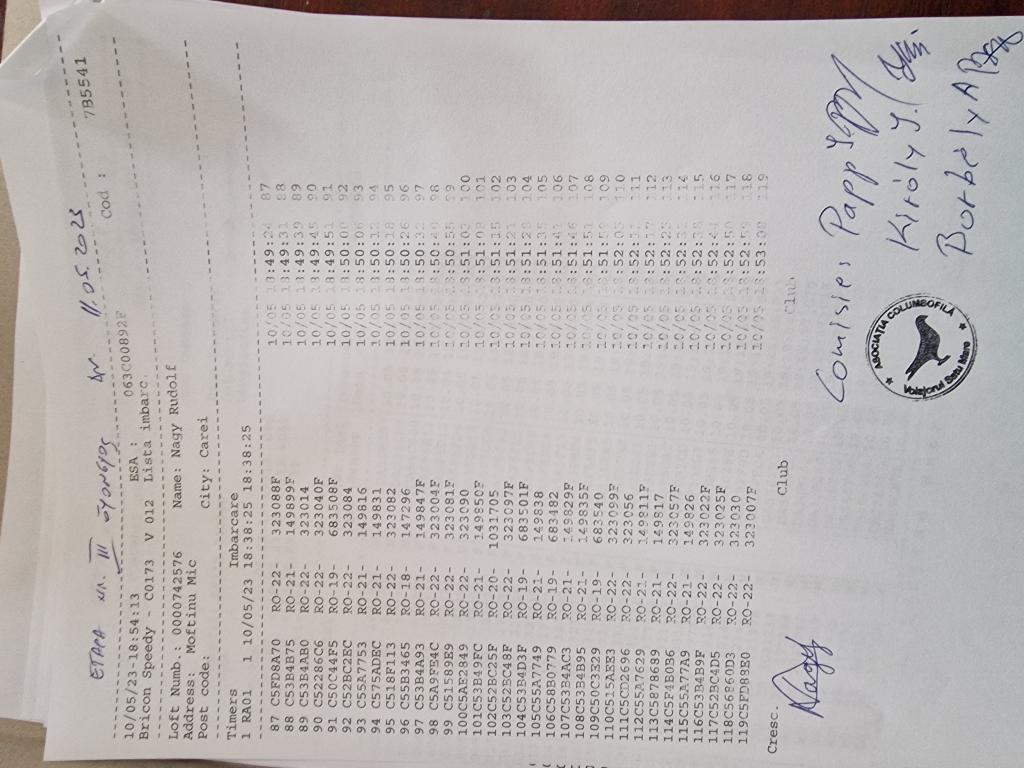 ETAPA NR. III GYONGYOS DN 11.05.2023
10/05/23-18:54:13 ESA : 063C00892F Cod : 7B5541
Bricon Speedy - C0173 V 012 Lista imbarc.
Loft Numb.: 0000742576 Name: Nagy Rudolf
Address: Moftinu Mic City: Carei
Post code:
Timers Imbarcare
1 RA01 1 10/05/23 18:38:25 18:38:25
87 C5FD8A70 RO-22- 323088F 10/05 18:49:24 87
88 C53B4B75 RO-21- 149899F 10/05 18:49:31 88
89 C53B4AB0 RO-22- 323014 10/05 18:49:39 89
90 C52286C6 RO-22- 323040F 10/05 18:49:45 90
91 C50C44F5 RO-19- 683508F 10/05 18:49:51 91
92 C52BC2EC RO-22- 323084 10/05 18:50:00 92
93 C55A7753 RO-21- 149816 10/05 18:50:06 93
94 C575ADEC RO-21- 149831 10/05 18:50:12 94
95 C518F113 RO-22- 323082 10/05 18:50:18 95
96 C55B3465 RO-18- 147296 10/05 18:50:26 96
97 C53B4A93 RO-21- 149847F 10/05 97
98 C5A9FE4C RO-22- 323004F 10/05 98
99 C51589E9 RO-22- 323081F 10/05 18:50:55 99
100C5AE2849 RO-22- 323090 10/05 18:51:03 100
101C53B49FC RO-21- 149850F 10/05 18:51:08 101
102C52BC25F RO-20- 1031705 10/05 18:51:15 102
103C52BC48F RO-22- 323097F 10/05 103
104C53B4D3F RO-19- 683501F 10/05 104
105C55A7749 RO-21- 149838 10/05 105
106C58B0779 RO-19- 683482 10/05 106
107C53B4AC3 RO-21- 149829F 10/05 107
108C53B4B95 RO-21- 149835F 10/05 108
109C50C3329 RO-19- 683540 10/05 109
110C515AEE3 RO-22- 323099F 10/05 110
111C5CD2696 RO-22- 323056 10/05 111
112C55A7629 RO-21- 149811F 10/05 112
113C5878689 RO-21- 149817 10/05 113
114C5F4B0B6 RO-22- 323057F 10/05 114
115C55A77A9 RO-21- 149826 10/05 115
116C53B4B9F RO-22- 323022F 10/05 116
117C52BC4D5 RO-22- 323025F 10/05 117
118C56B60D3 RO-22- 323030 10/05 118
119C5FD83E0 RO-22- 323007F 10/05 119
Cresc. Club Club
Nagy
Comisie: Papp
Király J.
Borbély A
ASOCIATIA COLUMBOFILĂ
Voiajorul Satu Mare